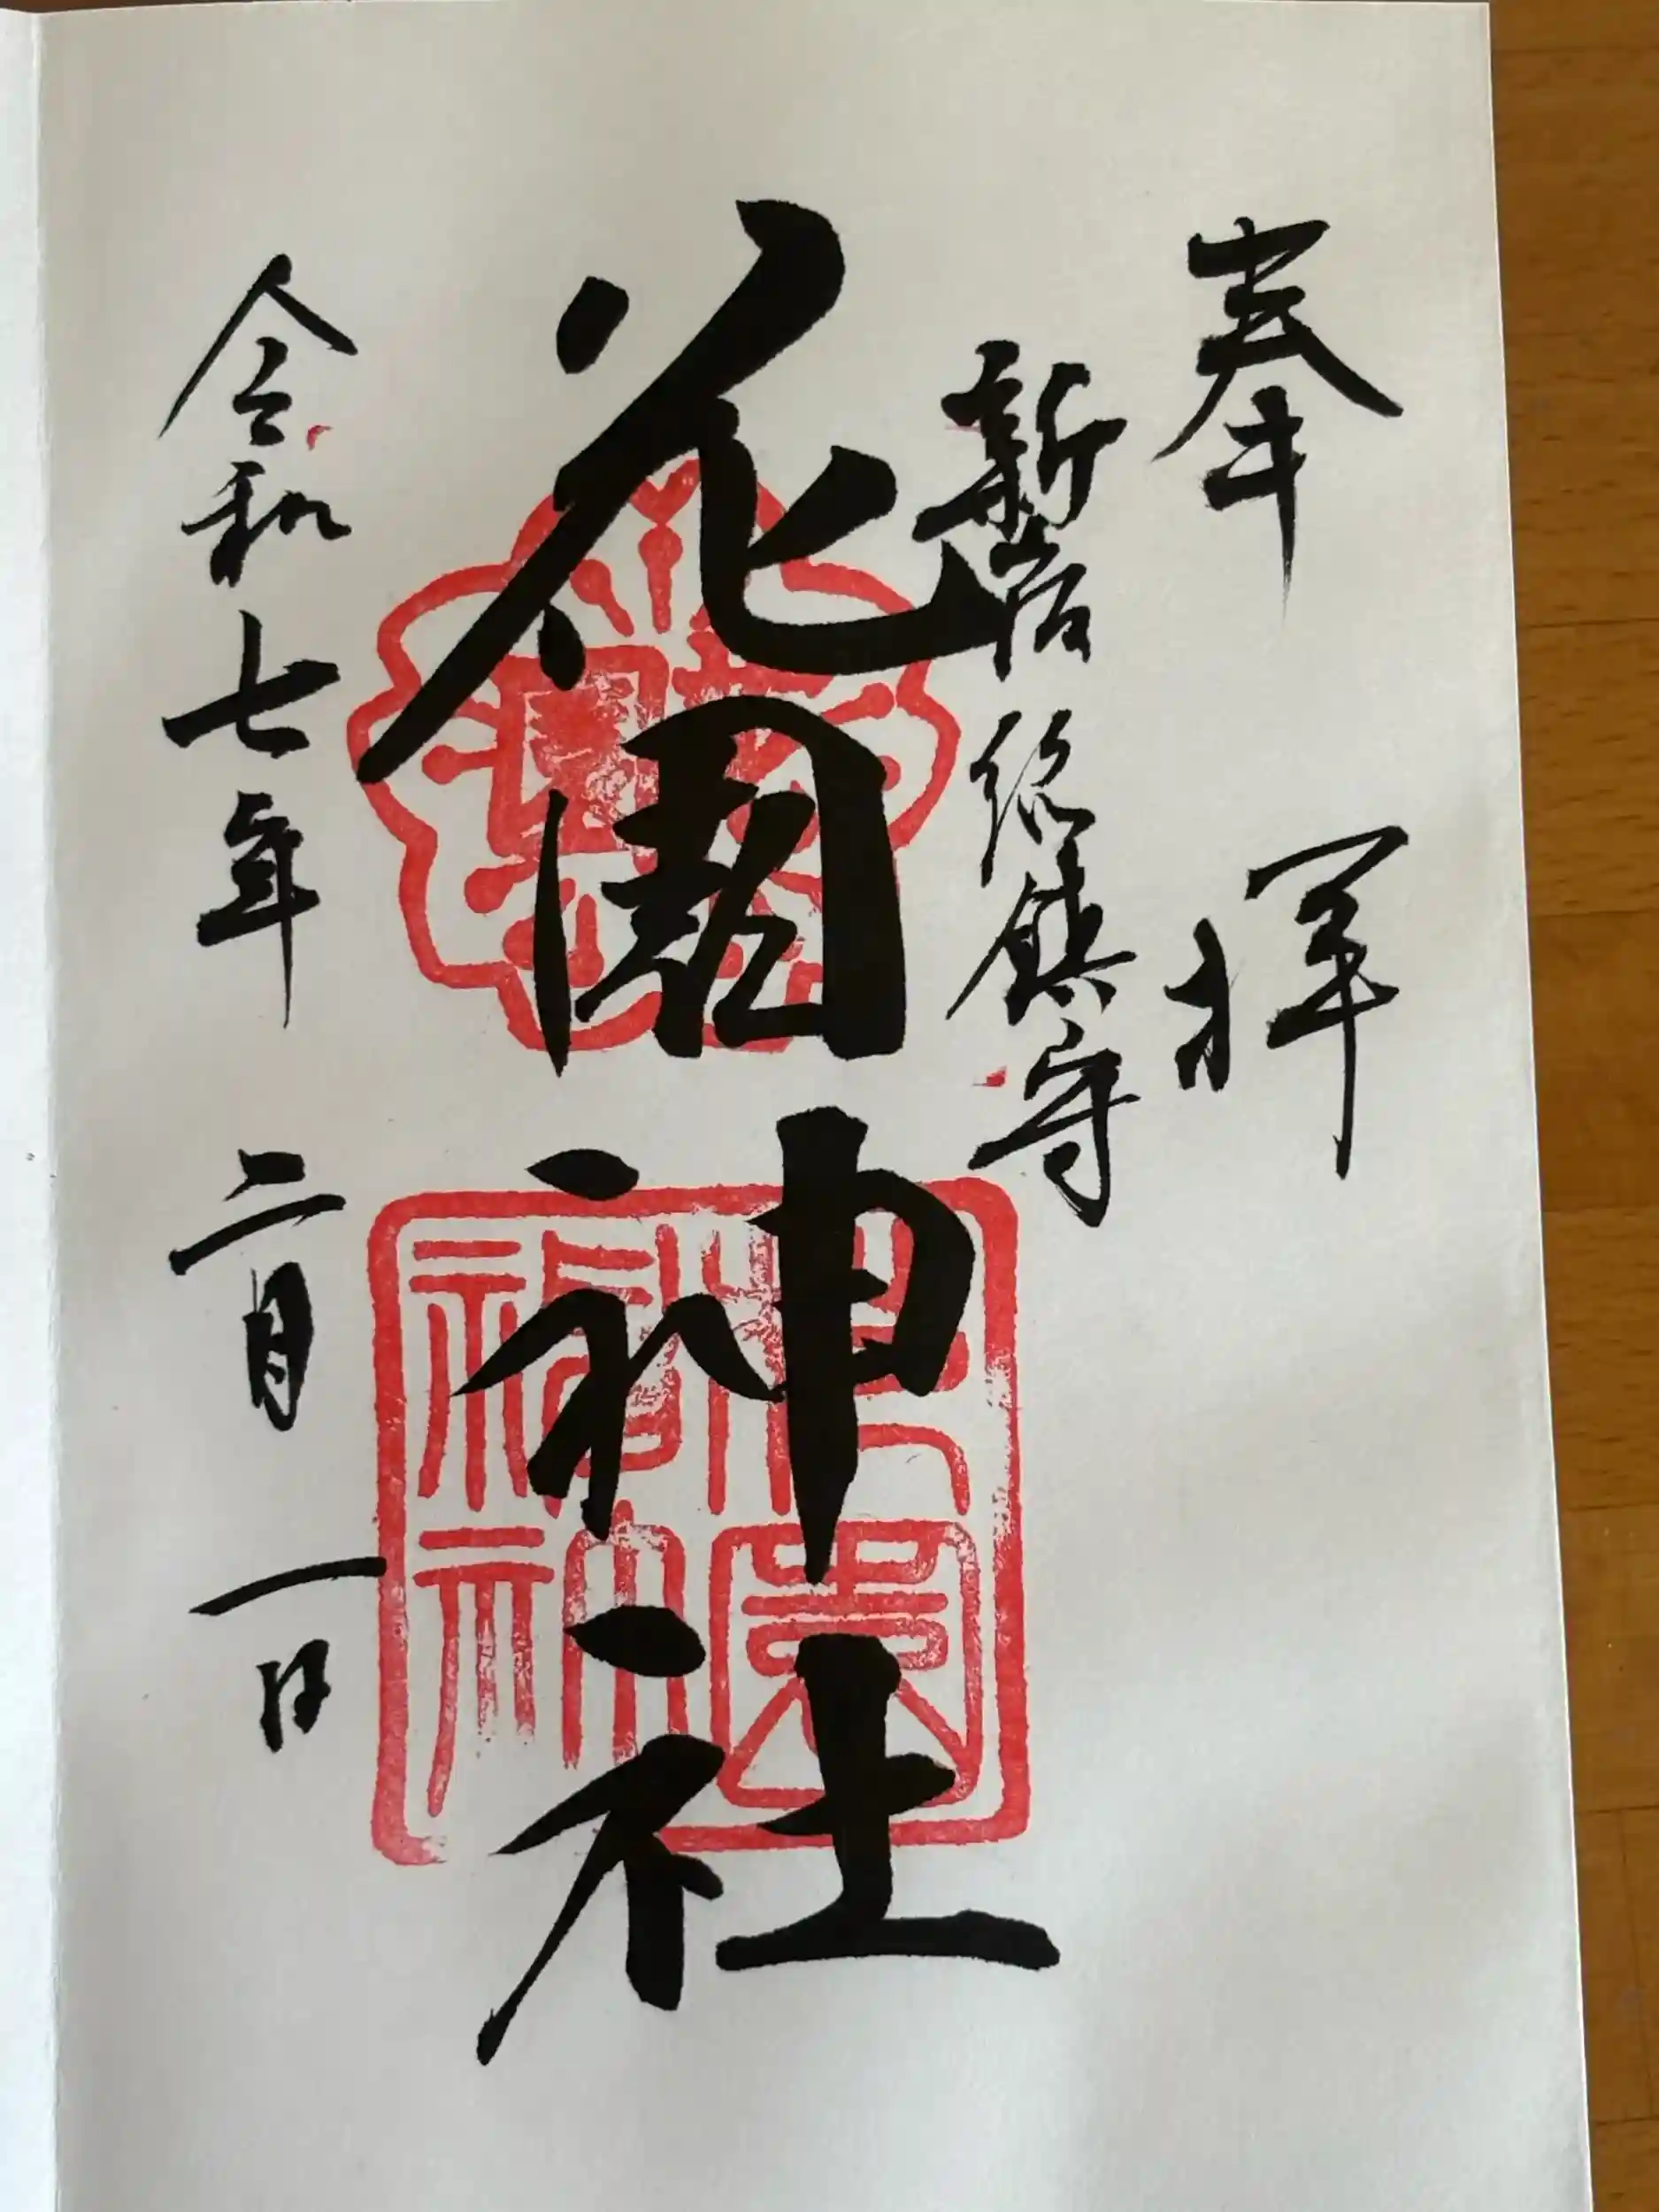 奉拝
新宿総鎮守
花園神社
令和七年二月一日
花園
花園神社